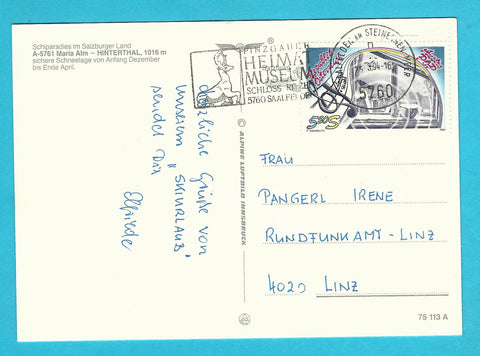 Schiparadies im Salzburger Land
A-5761 Maria Alm – HINTERTHAL, 1016 m
sichere Schneelage von Anfang Dezember
bis Ende April.
PINZGAUER
HEIMAT
MUSEUM
SCHLOSS RITZEN
5760 SAALFELDEN
SAALFELDEN AM STEINERNEN MEER
5760
Herzliche Grüße von
unserem "SKIURLAUB"
sendet Dir
Elfriede
ALPINE LUFTBILD INNSBRUCK
FRAU
PANGERL IRENE
RUNDFUNKAMT-LINZ
4020 LINZ
75 113 A